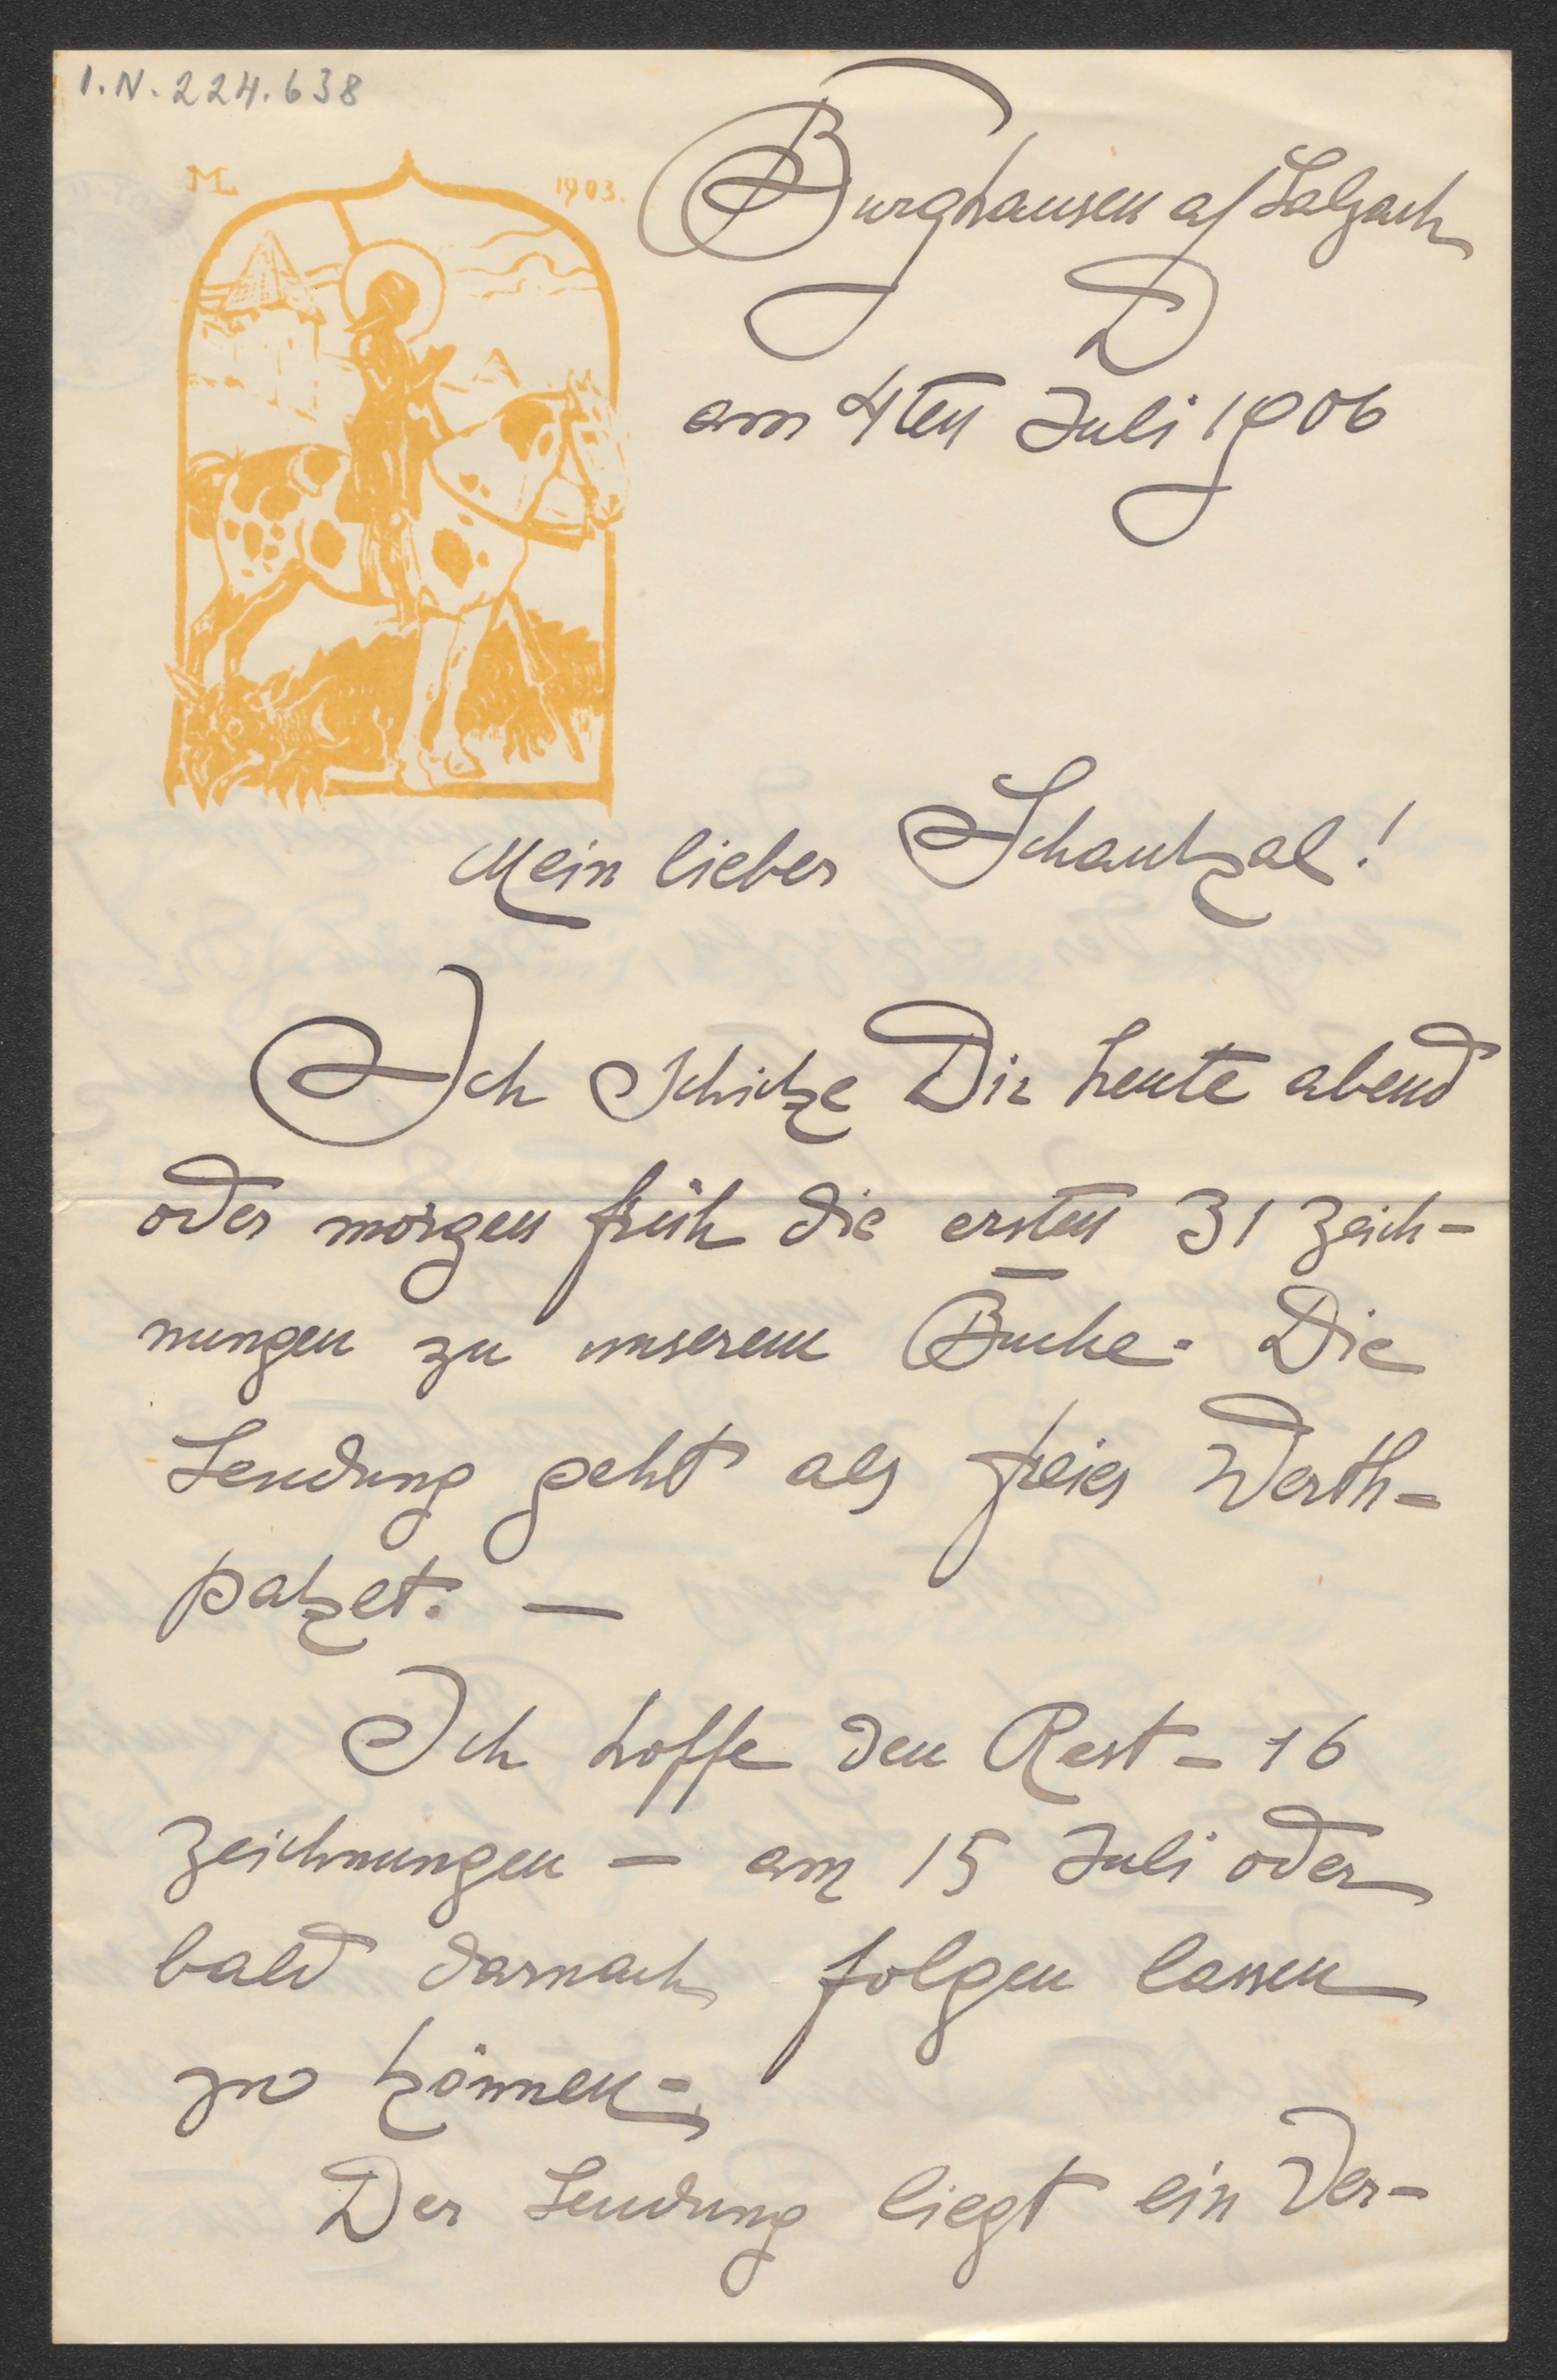 I.N. 224.638
ML 1903.
Burghausen a/Salzach
am 4ten Juli 1906
Mein lieber Schaukal!
Ich schicke Dir heute abend
oder morgen früh die ersten 31 Zeich-
nungen zu unserem Buche. Die
Sendung geht als freies Werth-
paket. —
Ich hoffe den Rest – 16
Zeichnungen — am 15 Juli oder
bald darnach folgen lassen
zu können.
Der Sendung liegt ein Ver-